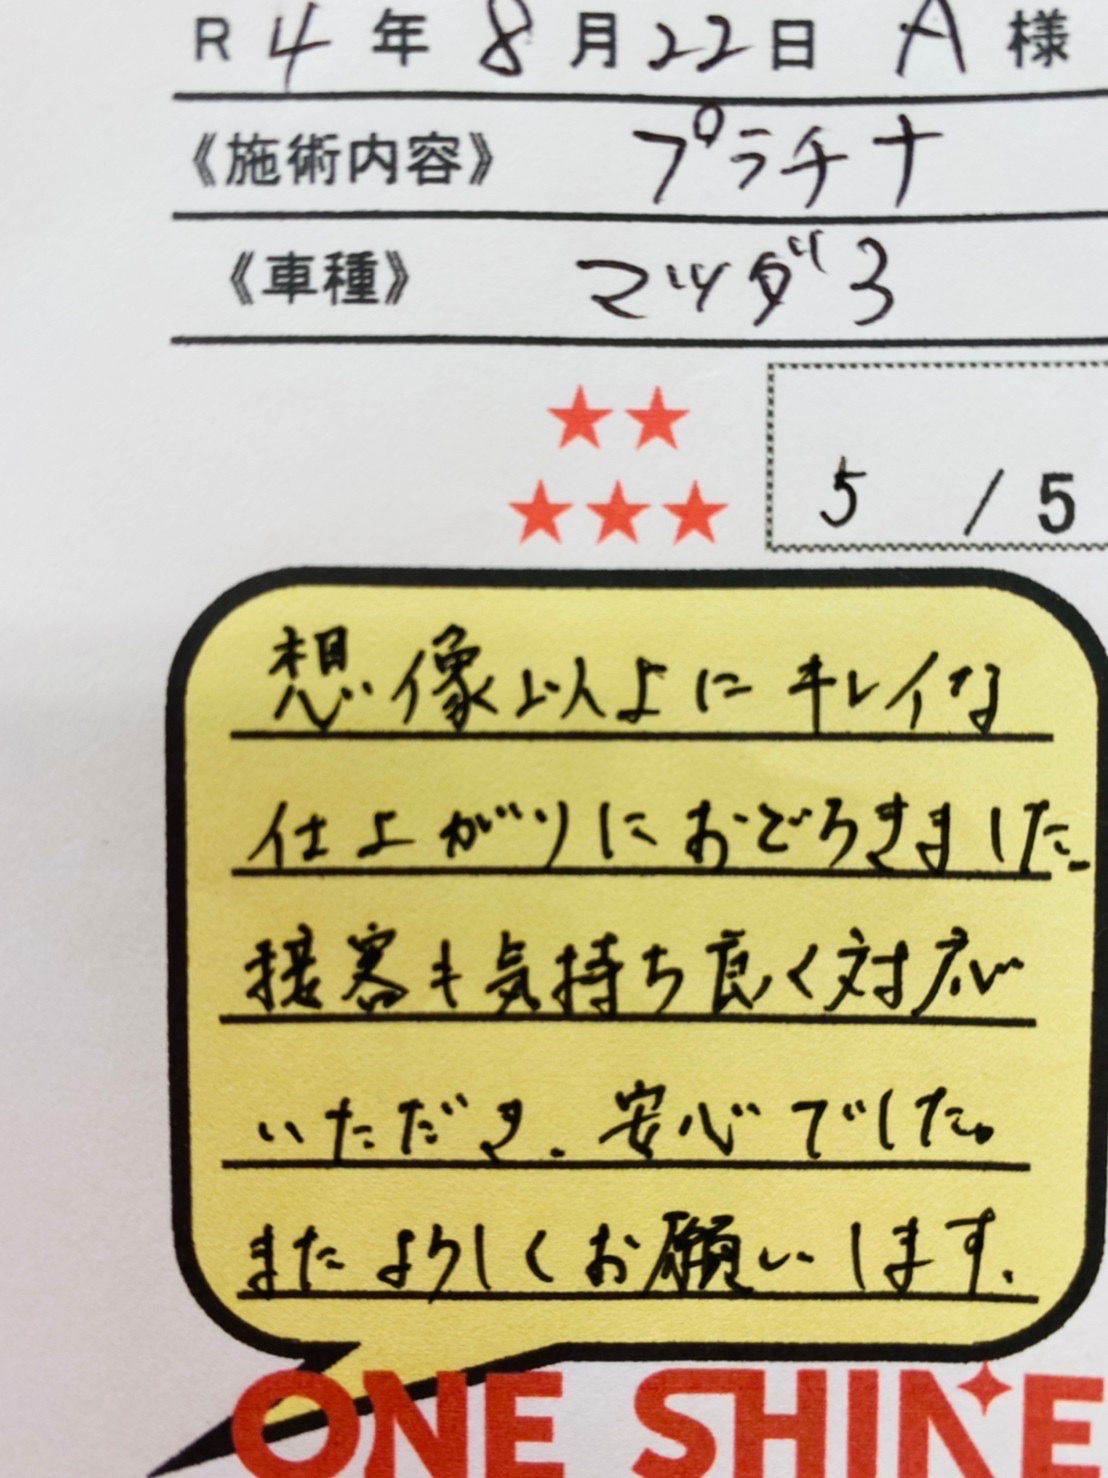 R 4 年 8 月 22 日 A 様
《施術内容》 プラチナ
《車種》 マツダ3
5 / 5
想像以上にキレイな
仕上がりにおどろきました
接客も気持ち良く対応
いただき、安心でした。
またよろしくお願いします。
ONE SHINE